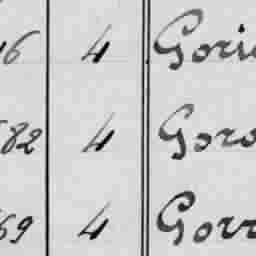 16 4 Gori
82 4 Goro
69 4 Gorr